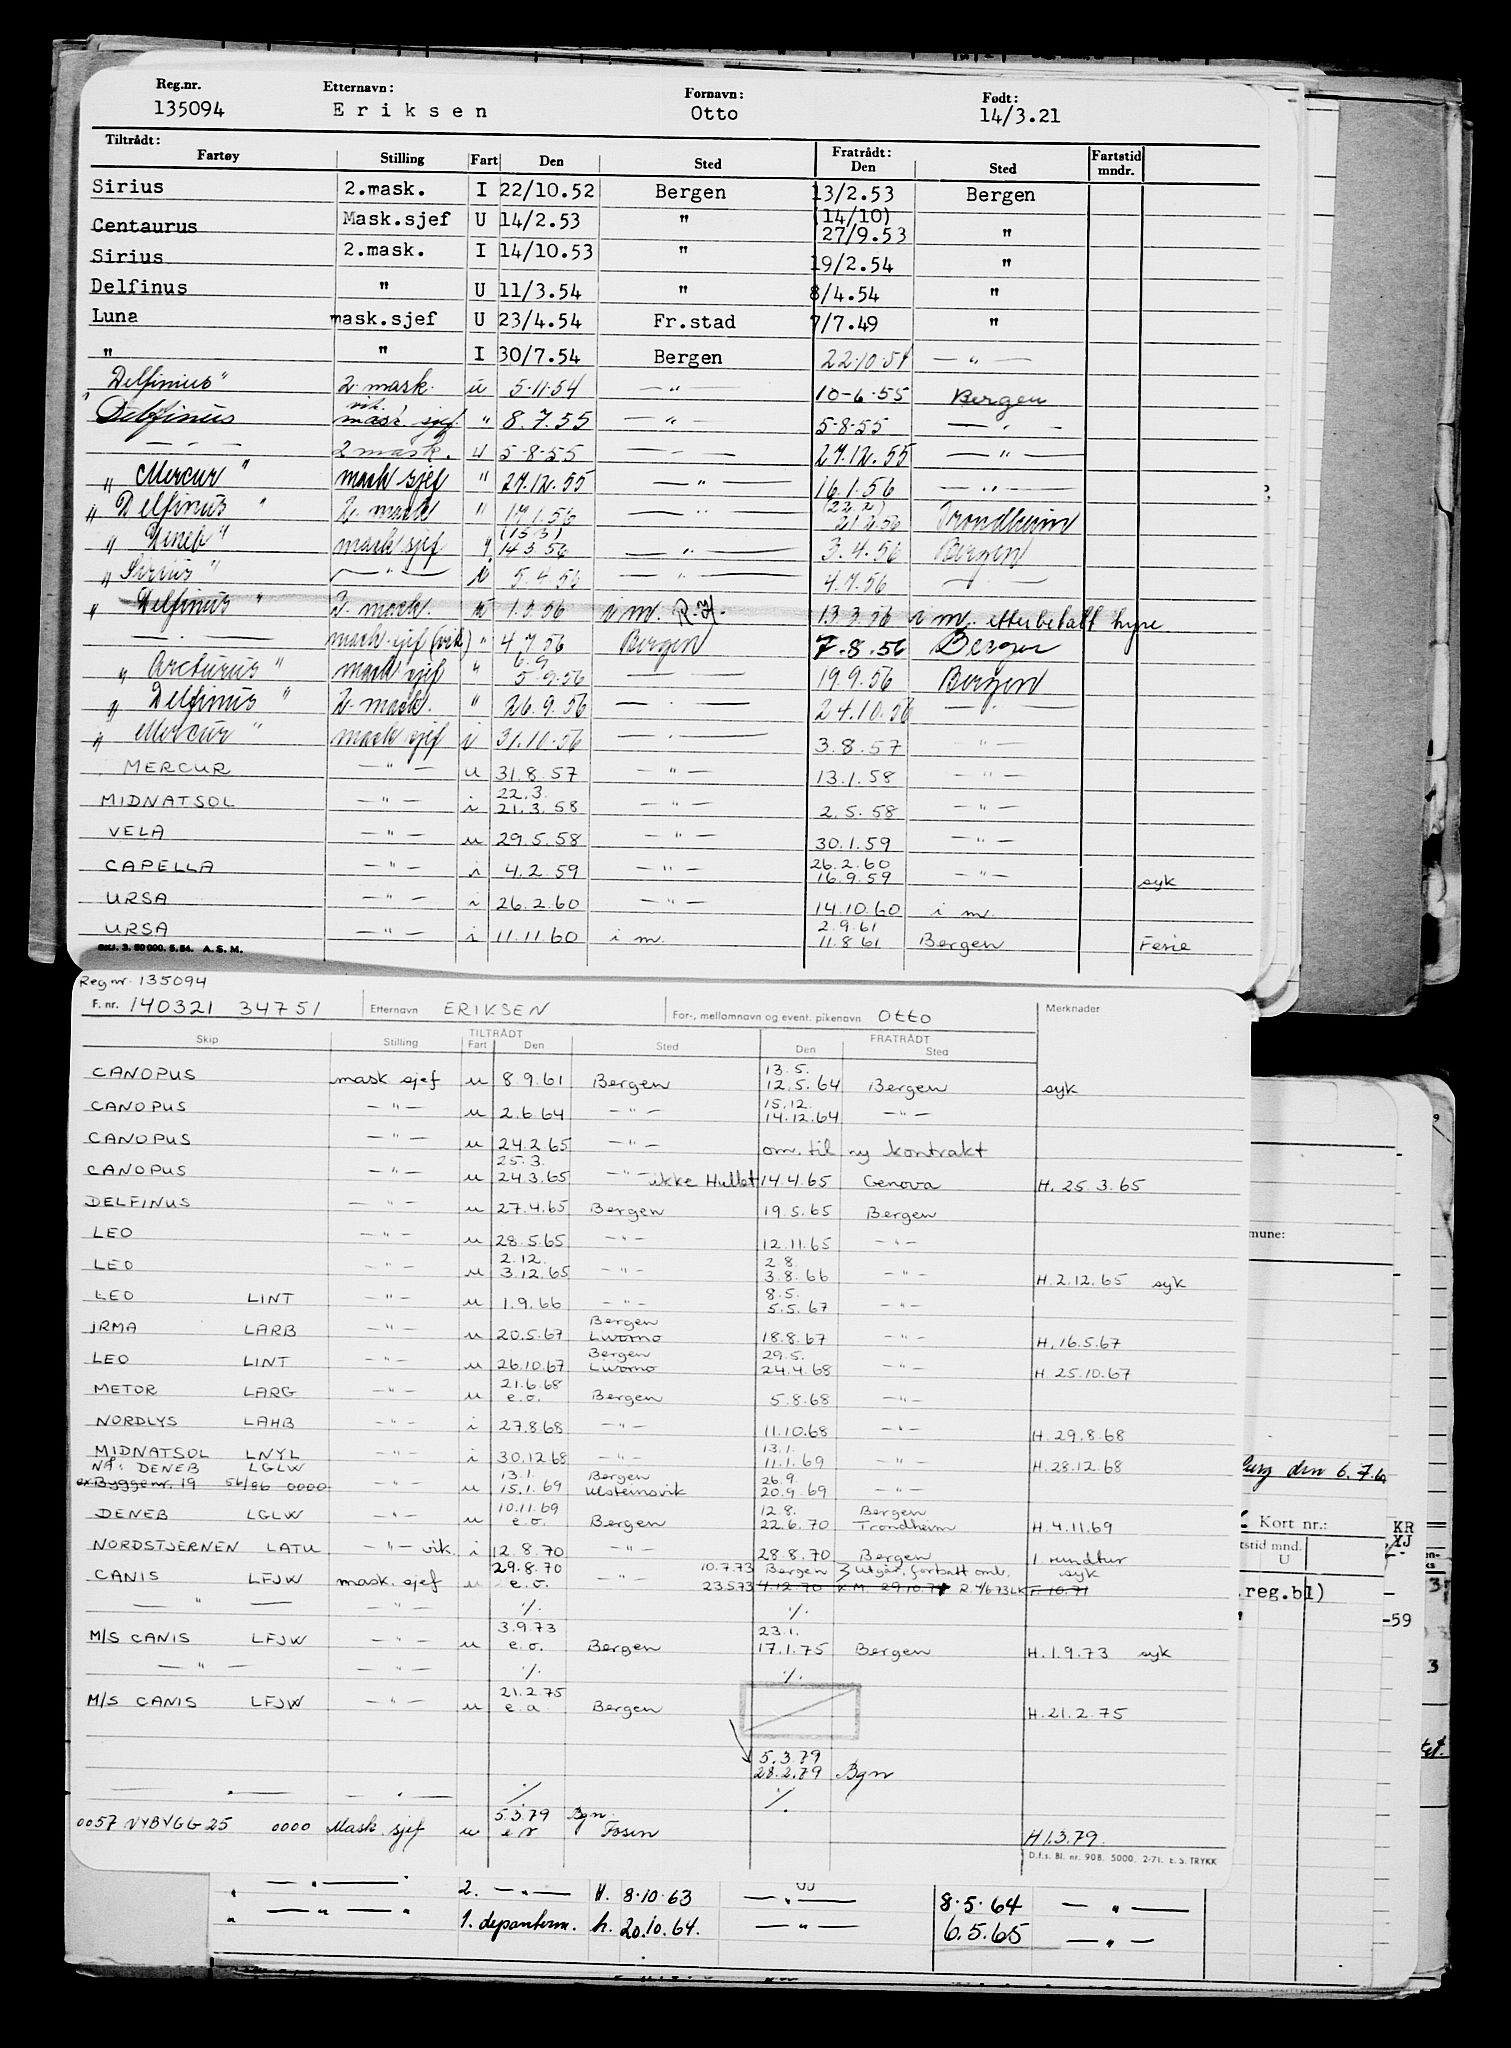 Reg.nr. Etternavn: Fornavn: Født:
135094 Eriksen Otto 14/3.21
Tiltrådt: Fratrådt:
Fartøy Stilling Fart Den Sted Den Sted Fartstid mndr.
Sirius 2.mask. I 22/10.52 Bergen 13/2.53 Bergen
Centaurus Mask.sjef U 14/2.53 " (14/10) 27/9.53 "
Sirius 2.mask. I 14/10.53 " 19/2.54 "
Delfinus " U 11/3.54 " 8/4.54 "
Luna mask.sjef U 23/4.54 Fr.stad 7/7.49 "
" " I 30/7.54 Bergen 22.10.54 — " —
Delfinius" 2. mask. u 5.11.54 — " — 10-6.55 Bergen
" Delfinus vik. mask. sjef. " 8.7.55 — " — 5-8-55 — " —
— " — 2 mask. u 5-8-55 — " — 27.12.55 — " —
" Mercur " mask sjef " 27.12.55 — " — 16.1.56 — " —
" Delfinus " 2. mask " 17.1.56 — " — (22.2) 21.2.56 Trondheim
" Deneb " mask sjef " (15/3) 14.3.56 — " — 3.4.56 Bergen
" Sirius " — " — i 5.4.56 — " — 4.7.56 — " —
" Delfinus " 2. mask. u 1.3.56 i m. 13.3.56 i m. etterbetalt hyre
— " — mask sjef (vik) " 4.7.56 Bergen 7.8.56 Bergen
" Arcturus " mask sjef " 6.9 5.9.56 — " — 19.9.56 Bergen
" Delfinus " 2. mask. " 26.9.56 — " — 24.10.56 — " —
" Mercur " mask sjef i 31.10.56 — " — 3.8.57 — " —
MERCUR — " — u 31.8.57 — " — 13.1.58 — " —
MIDNATSOL — " — i 22.3. 21.3.58 — " — 2.5.58 — " —
VELA — " — u 29.5.58 — " — 30.1.59 — " —
CAPELLA — " — i 4.2.59 — " — 26.2.60 16.9.59 — " — syk
URSA — " — i 26.2.60 — " — 14.10.60 i m.
URSA — " — i 11.11.60 i m. 2.9.61 11.8.61 Bergen Ferie
SKJ. 3. 50 000. 5.54. A. S. M.
Reg nr. 135094
F. nr. 140321 34751 Etternavn ERIKSEN For-, mellomnavn og event. pikenavn Otto Merknader
TILTRÅDT FRATRÅDT
Skip Stilling Fart Den Sted Den Sted
CANOPUS mask sjef u 8.9.61 Bergen 13.5. 12.5.64 Bergen syk
CANOPUS — " — u 2.6.64 — " — 15.12. 14.12.64 — " —
CANOPUS — " — u 24.2.65 — " — om. til ny kontrakt
CANOPUS — " — u 25.3. 24.3.65 — " — ikke Hullet 14.4.65 Genova H. 25.3.65
DELFINUS — " — u 27.4.65 Bergen 19.5.65 Bergen
LEO — " — u 28.5.65 — " — 12.11.65 — " —
LEO — " — u 2.12. 3.12.65 — " — 2.8. 3.8.66 — " — H.2.12.65 syk
LEO LINT — " — u 1.9.66 — " — 8.5. 5.5.67 — " —
IRMA LARB — " — u 20.5.67 Bergen Livorno 18.8.67 — " — H.16.5.67
LEO LINT — " — u 26.10.67 Bergen Livorno 29.5. 24.4.68 — " — H.25.10.67
METOR LARG — " — u 21.6.68 e.o. Bergen 5.8.68 — " —
NORDLYS LAHB — " — i 27.8.68 — " — 11.10.68 — " — H.29.8.68
MIDNATSOL LNYL — " — i 30.12.68 — " — 13.1. 11.1.69 — " — H.28.12.68
NÅ: DENEB LGLW
ex.Byggenr. 19 56/86 0000 — " — u 13.1. 15.1.69 Bergen Ulsteinsvik 26.9. 20.9.69 — " —
DENEB LGLW — " — u 10.11.69 e.o. Bergen 12.8. 22.6.70 Bergen Trondheim H.4.11.69
NORDSTJERNEN LATU — " — vik. i 12.8.70 — " — 28.8.70 Bergen 1 rundtur
CANIS LFJW mask. sjef u 29.8.70 e.o. — " — 10.7.73 Bergen utgår, forbatt oml. syk
23.5.73 4.12.70 29.10.71 F 10.71
— " — — " — ٪ ٪
M/S CANIS LFJW — " — u 3.9.73 e.o. Bergen 23.1. 17.1.75 Bergen H.1.9.73 syk
— " — — " — ٪ ٪
M/S CANIS LFJW — " — u 21.2.75 e.a. Bergen H.21.2.75
5.3.79 28.2.79 Bgn
— " — — " — ٪ ٪
0057 NYBYGG 25 0000 Mask. sjef u 5.3.79 Bgn. Fosen H 1.3.79.
D.f.s. Bl. nr. 908. 5000. 2-71. E. S. TRYKK
" — " — 2. — " — H. 8.10.63 — " — 8.5.64 — " —
" — " — " 1. h. 20.10.64. — " — 6.5.65 — " —
mune:
den 6.7.6
Kort nr.:
KR
XJ
tstid mnd.
U
.reg.bl)
-59
3
3
9